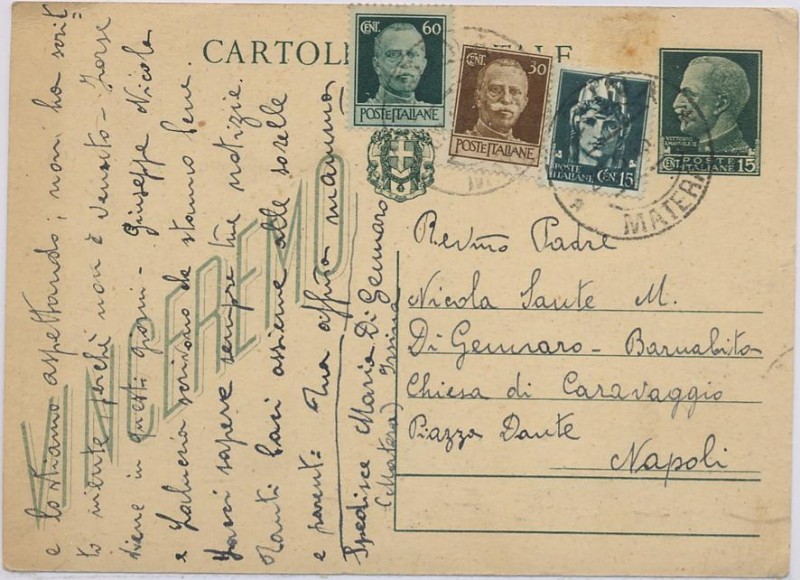 CARTOLI ALE
CENT. 60
POSTE ITALIANE
CENT. 30
POSTE ITALIANE
POSTE
ITALIANE
CEN 15
VITTORIO
CENT. POSTE
ITALIANE 15
MATERA
VINCEREMO
Rev.mo Padre
Nicola Sante M.
Di Gennaro - Barnabita
Chiesa di Caravaggio
Piazza Dante
Napoli
e lo stiamo aspettando; non ha scrit
to niente perchè non è venuto - Forse
viene in questi giorni - Giuseppe Nicola
e scrivono da stanno bene.
Facci sapere sempre tue notizie.
Tanti baci assieme alle sorelle
e parenti tua aff.ma mamma
Spedisce Maria Di Gennaro
(Matera) Irsina